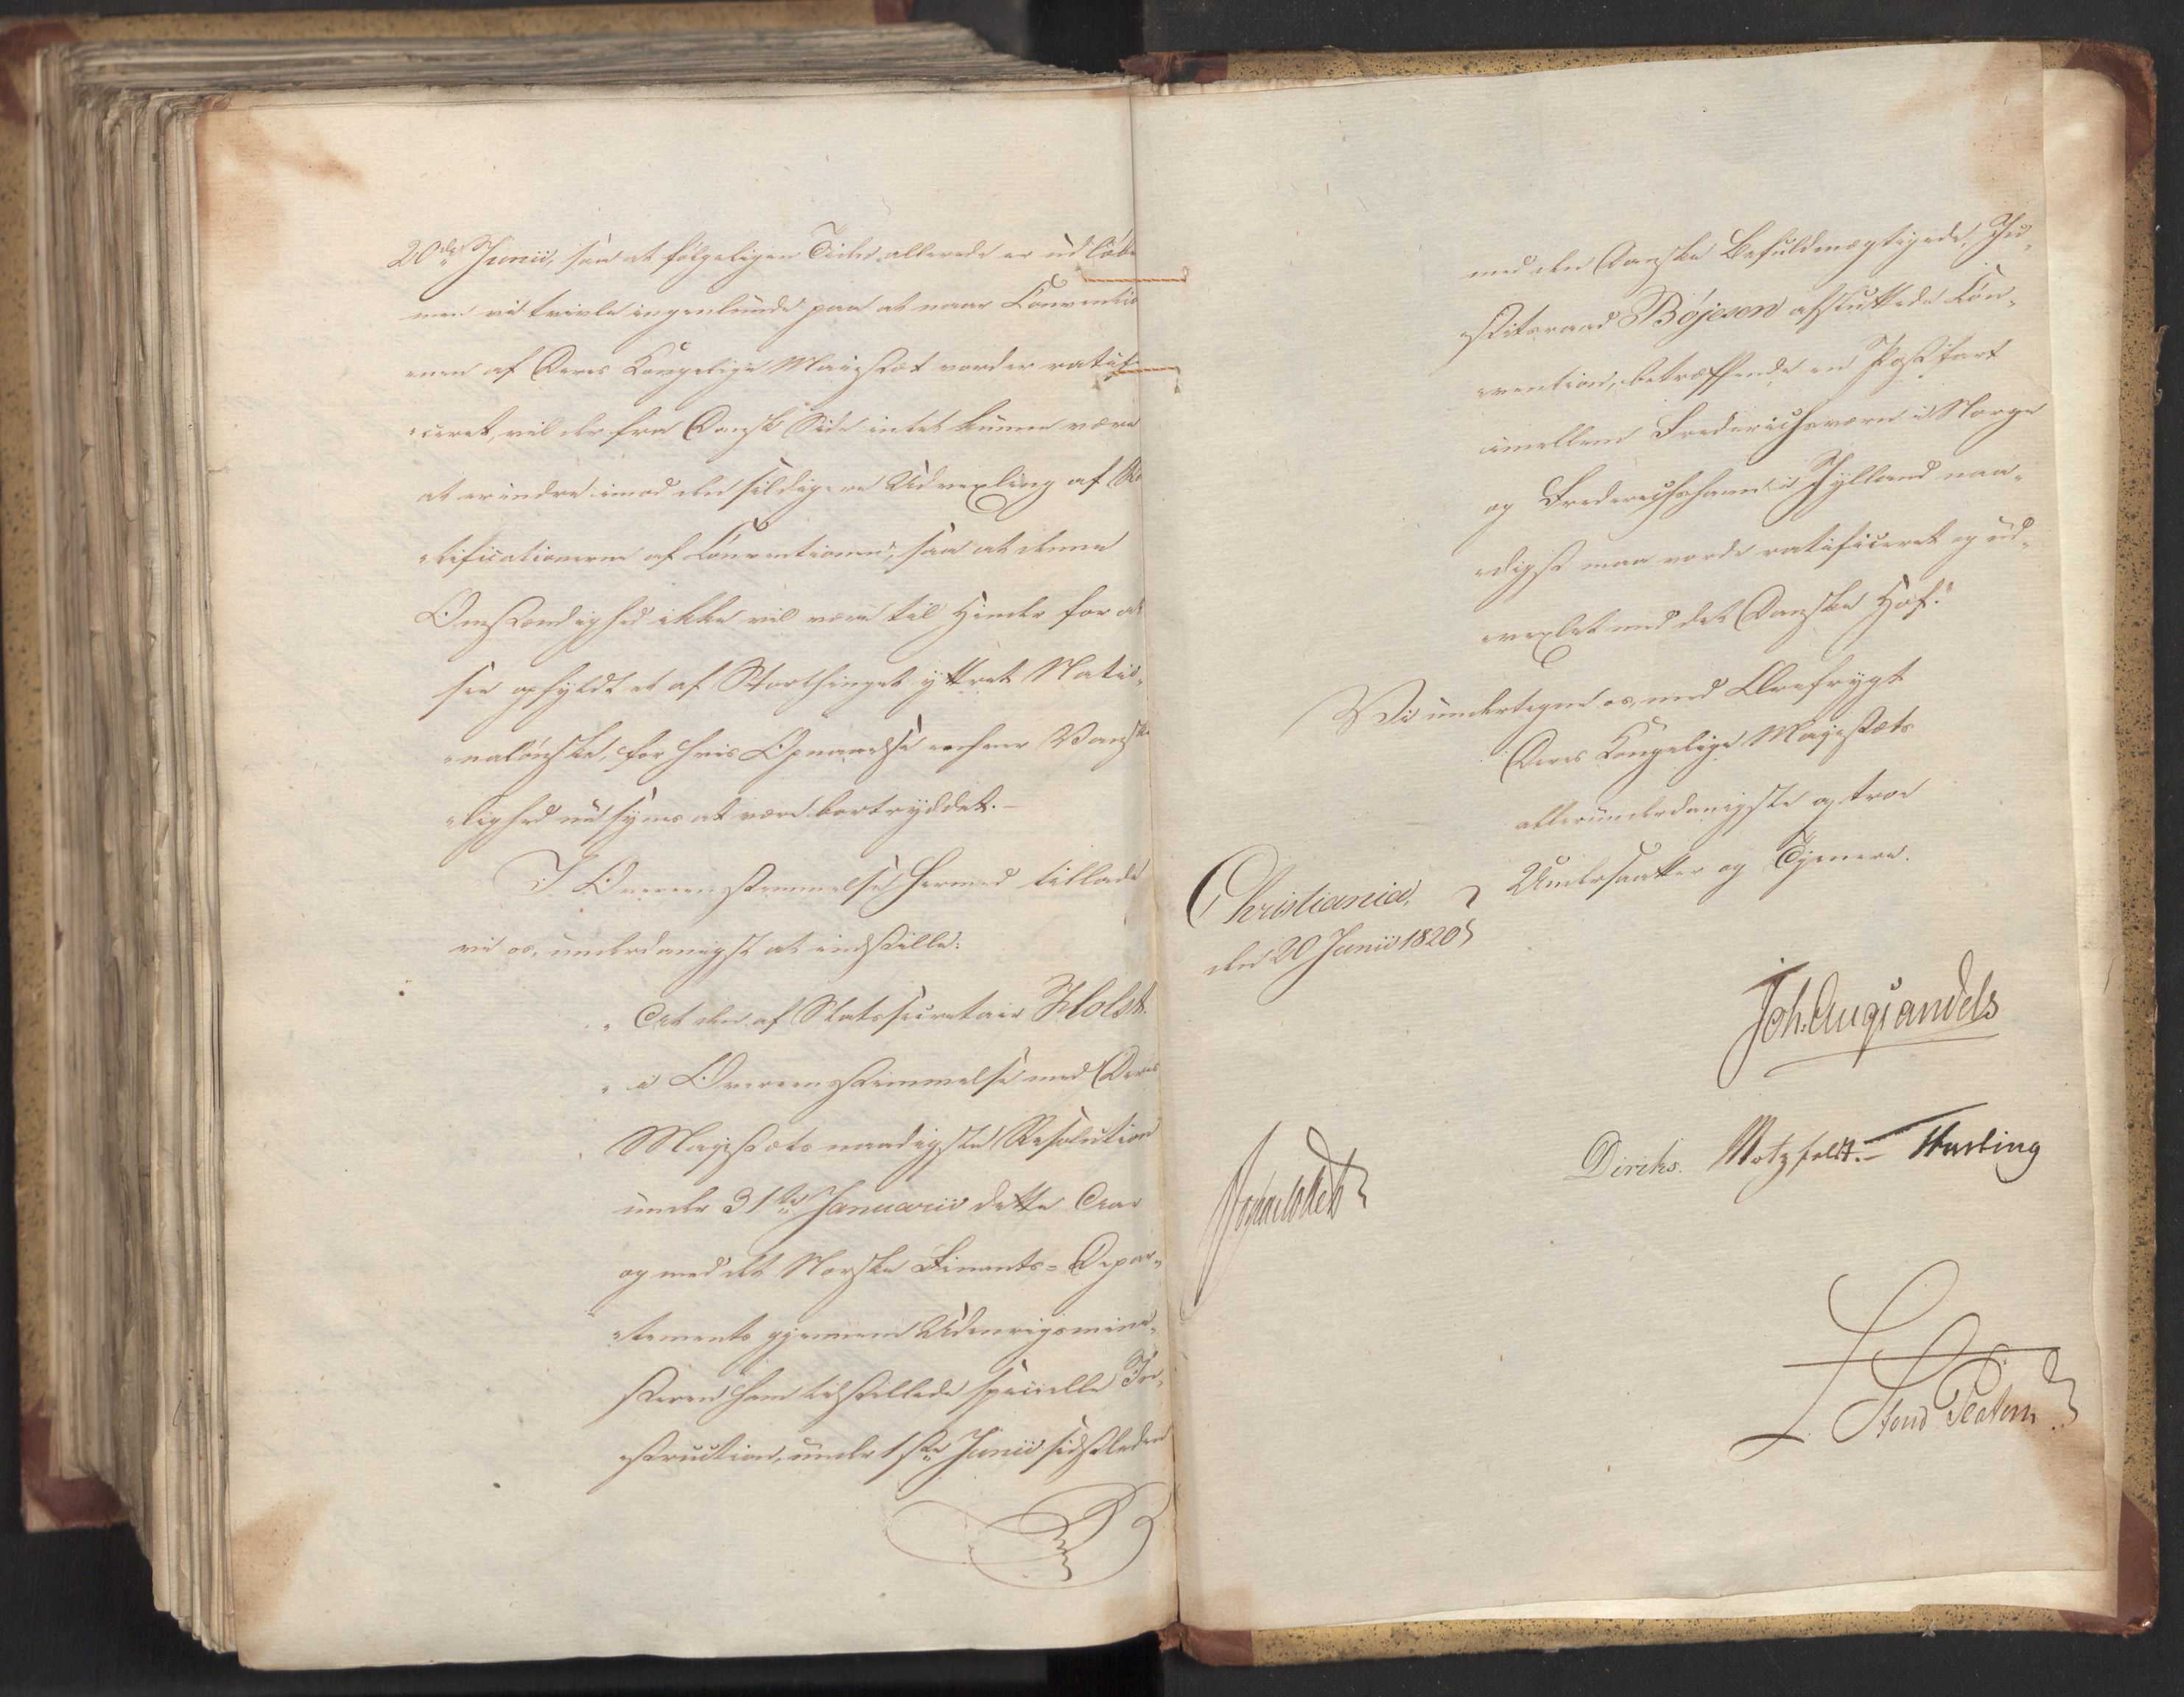 20de Junii, saa at følgeligen Tiden allerede er udløbe
men vi tvivle ingenlunde paa at naar Conventio
nen af Deres Kongelige Majestæt vorder ratifi
ceret, vil der fra Dansk Side intet kunne være
at erindre imod den sildigere Udvexling af Ra
tificationerne af Conventionen, saa at denne
Omstændighed ikke vil være til Hinder for at
see opfyldt et af Storthinget yttret Natio-
nalønske, for hvis Opnaaelse enhver Vanske
lighed nu synes at være bortryddet.-
I Overeensstemmelse hermed tillade
vi os, underdanigst at indstille:
"At den af Statssecretair Holst
"i Overeensstemmelse med Deres
Majestæts naadigste Resolution
under 31te Januarii dette Aar
og med det Norske Finants-Depar-
tements gjennem Udenrigsmini-
steren ham tilstillede specielle In-
struction, under 1ste Junii sidstleden
med den Danske Befuldmægtigede, Ju-
stitsraad Böjesen afsluttede Con-
vention, betræffende en Postfart
imellem Frederichsværn i Norge
og Frederichshavn i Jylland naa-
digst maa vorde ratificeret og ud-
vexlet med det Danske Hof."
Vi undertegne os, med Ærefrygt
Deres Kongelige Majestæts
allerunderdanigste og troe
Undersaatter og Tjenere.
Christiania,
den 20 Junii 1820
Joh. Aug Sandels
Diriks. Motzfeldt.- Fasting